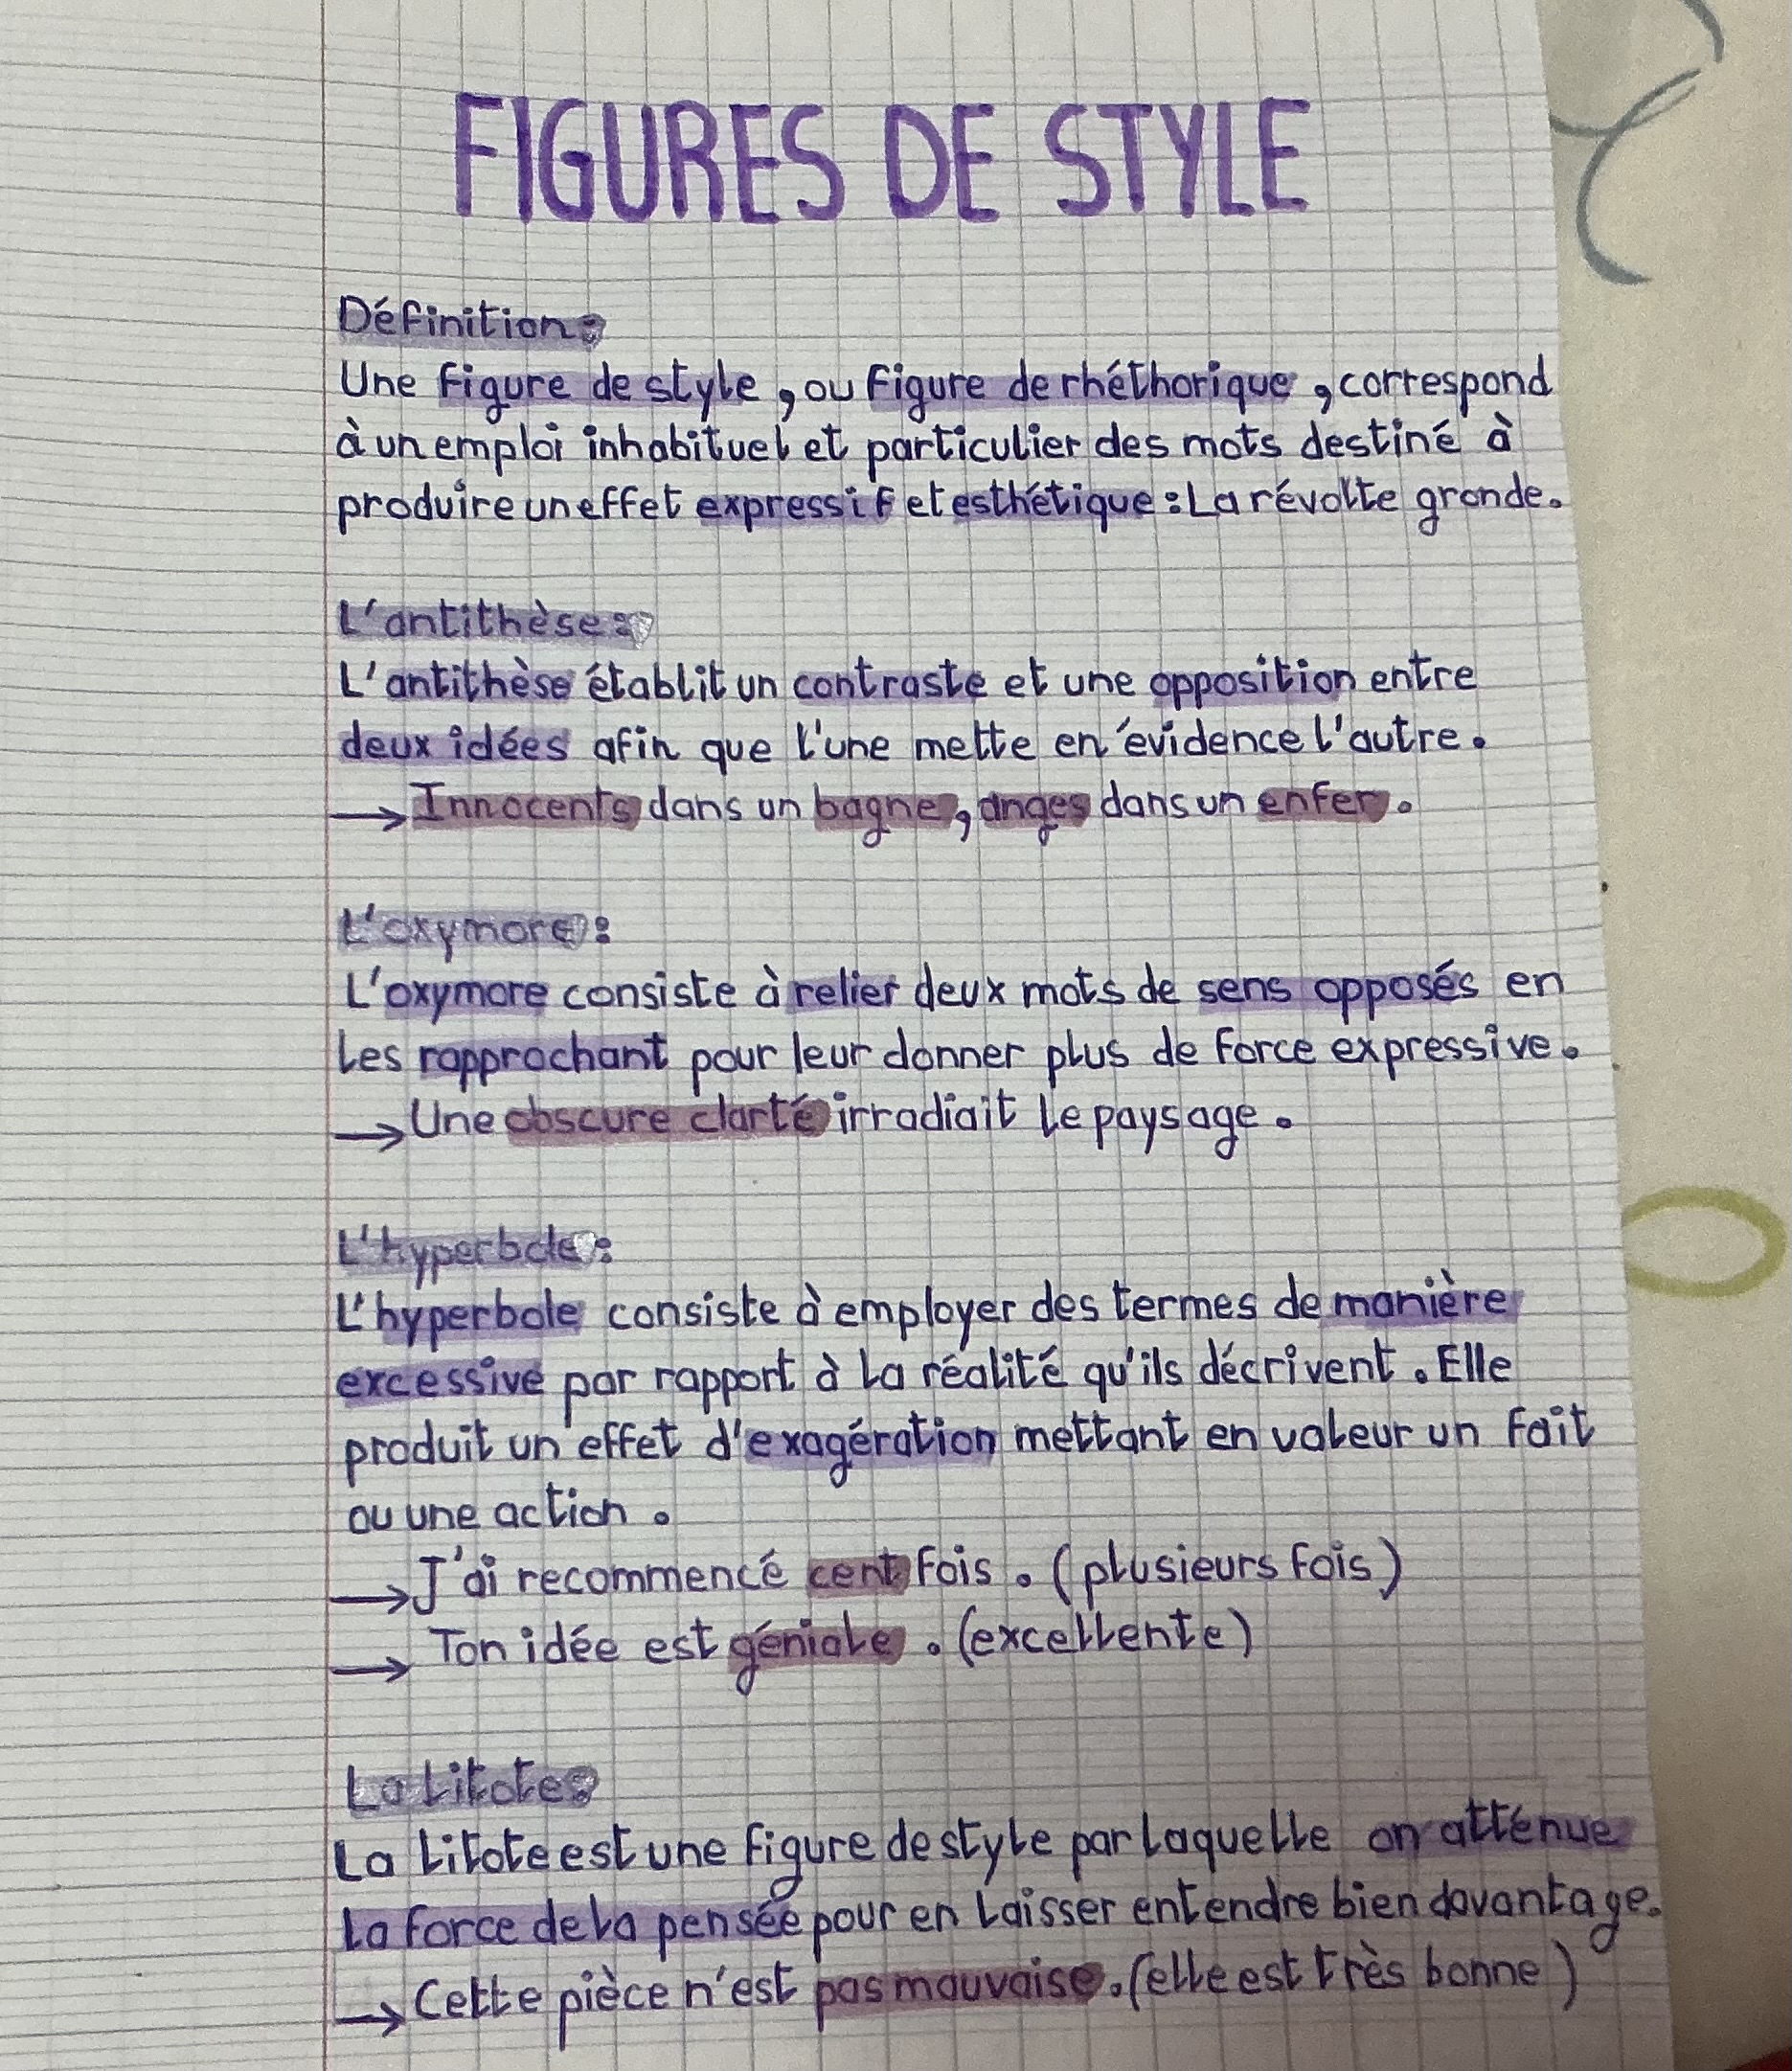 FIGURES DE STYLE
Définition:
Une figure de style, ou figure de rhéthorique, correspond
à un emploi inhabituel et particulier des mots destiné à
produire un effet expressif et esthétique : La révolte gronde.
L'antithèse:
L'antithèse établit un contraste et une opposition entre
deux idées afin que l'une mette en évidence l'autre.
→ Innocents dans un bagne, anges dans un enfer.
L'oxymore:
L'oxymore consiste à relier deux mots de sens opposés en
les rapprochant pour leur donner plus de force expressive.
→ Une obscure clarté irradiait le paysage.
L'hyperbole:
L'hyperbole consiste à employer des termes de manière
excessive par rapport à la réalité qu'ils décrivent. Elle
produit un effet d'exagération mettant en valeur un fait
ou une action.
→ J'ai recommencé cent fois. (plusieurs fois)
→ Ton idée est géniale. (excellente)
La litote:
La litote est une figure de style par laquelle on atténue
la force de la pensée pour en laisser entendre bien davantage.
→ Cette pièce n'est pas mauvaise. (elle est très bonne)